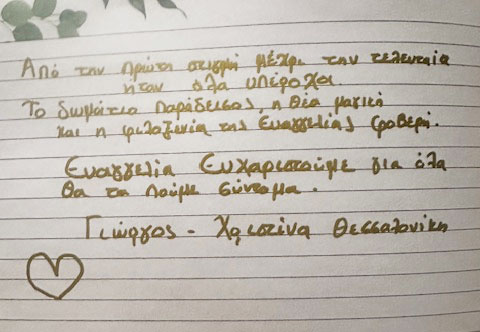 Από την πρώτη στιγμή μέχρι την τελευταία
ηταν ολα υπέροχα
Το δωμάτιο παράδεισος, η θέα μαγική
και η φιλοξενία της Ευαγγελίας φοβερή.
Ευαγγελία Ευχαριστούμε για όλα
θα τα πούμε σύντομα.
Γιώργος - Χριστίνα Θεσσαλονίκη